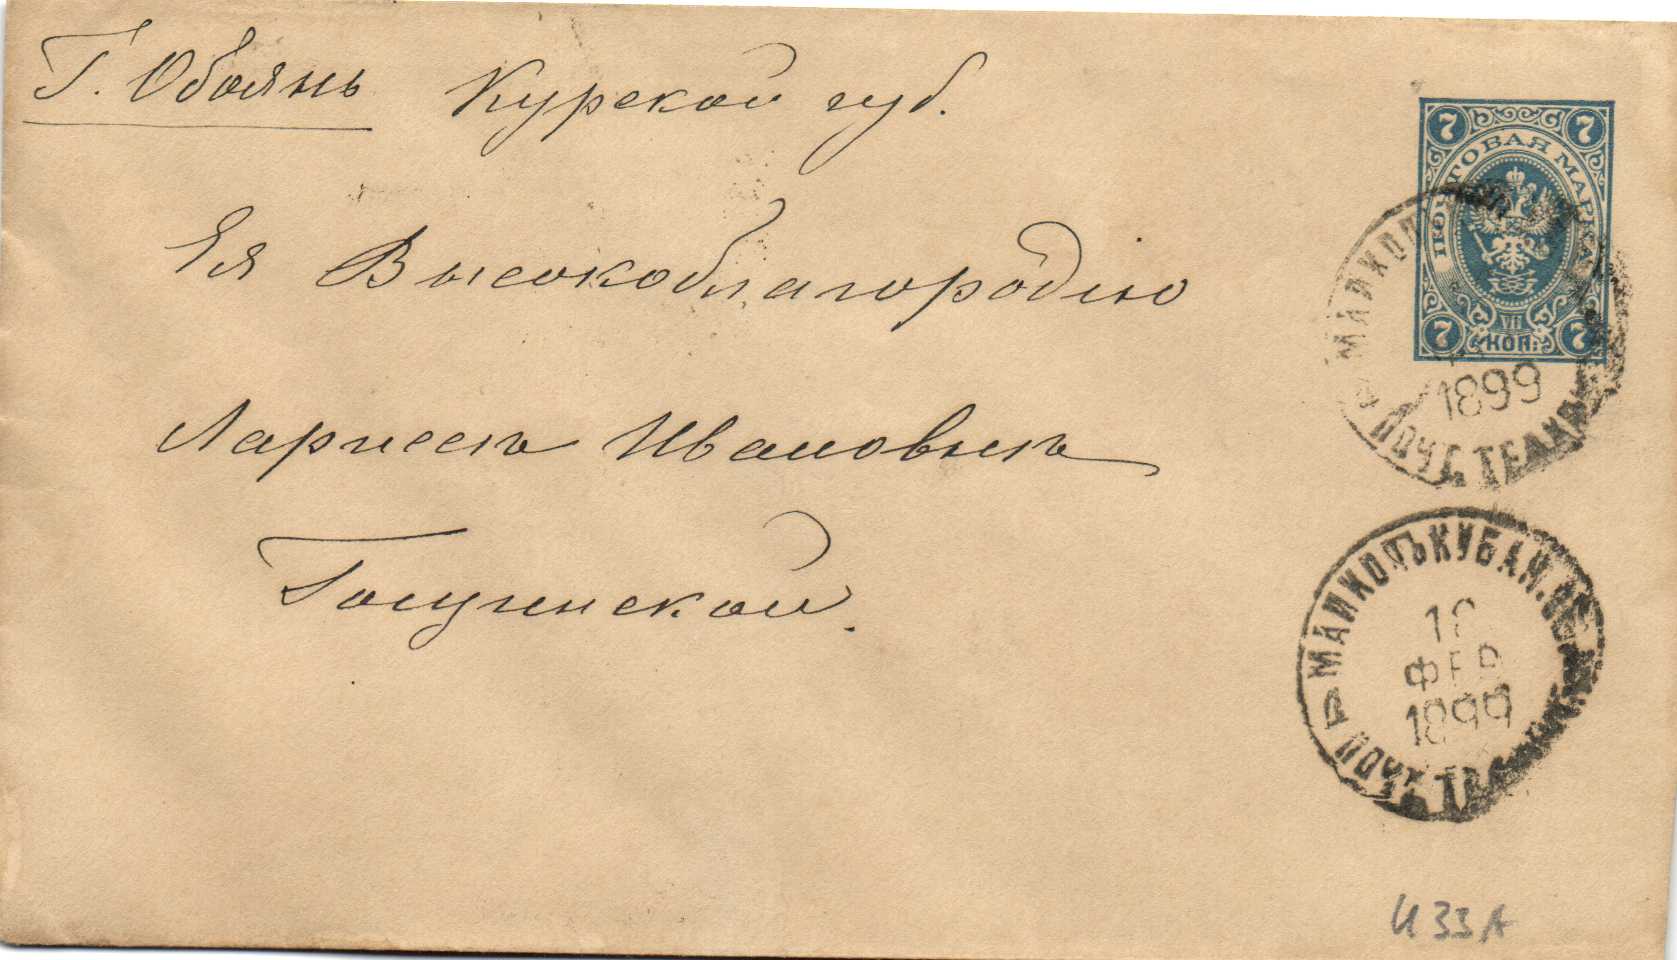 Г. Обоянь Курской губ.
Ея Высокоблагородію
Лариссѣ Ивановнѣ
7 7
ПОЧТОВАЯ МАРКА
VII
КОП.
7 7
МАЙКОП
1899
ПОЧТ. ТЕЛ
МАЙКОПЪ КУБАН. ОБ
ФЕВ
1899
ПОЧТ. ТЕЛ
U 33 A